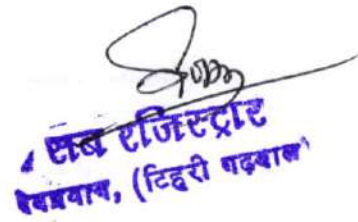 सब रजिस्ट्रार
देवप्रयाग, (टिहरी गढ़वाल